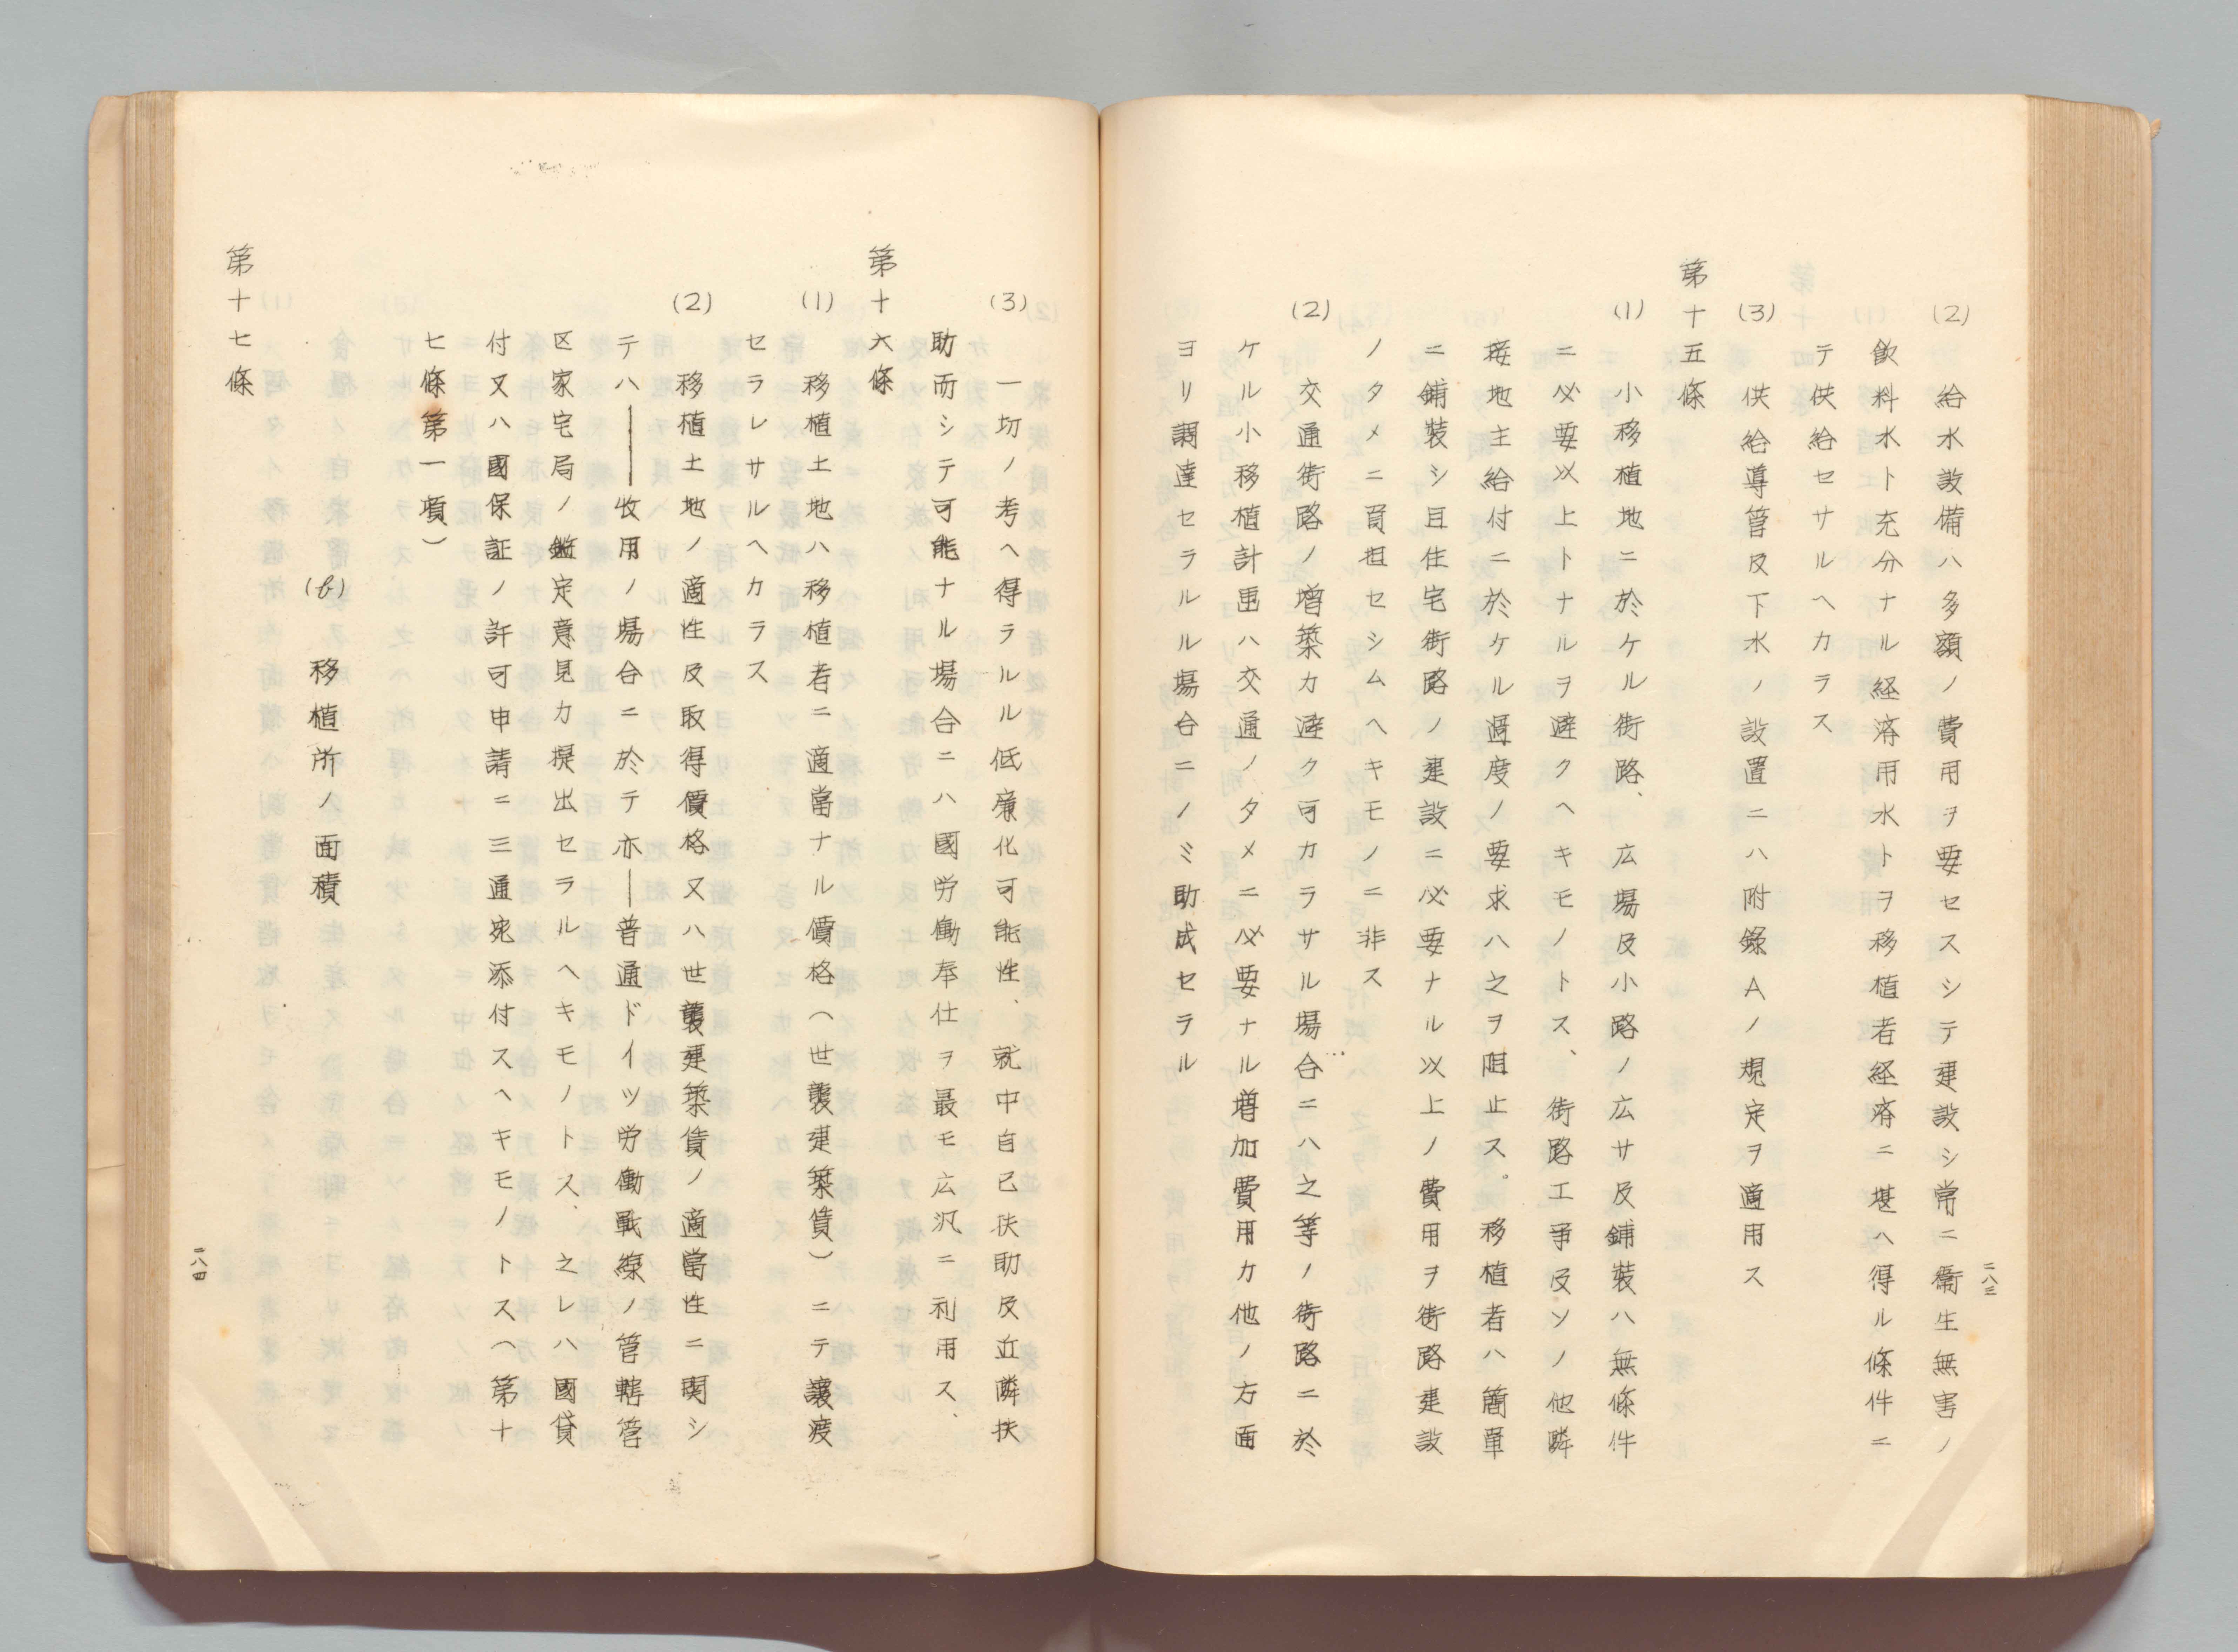 二八三
(2) 給水設備ハ多額ノ費用ヲ要セスシテ建設シ常ニ衞生無害ノ
飲料水ト充分ナル経済用水トヲ移植者経済ニ堪ヘ得ル條件ニ
テ供給セサルヘカラス
(3) 供給導管及下水ノ設置ニハ附錄Aノ規定ヲ適用ス
第十五條
(1) 小移植地ニ於ケル街路、広場及小路ノ広サ及鋪裝ハ無條件
ニ必要以上トナルヲ避クヘキモノトス、街路工事及ソノ他隣
接地主給付ニ於ケル過度ノ要求ハ之ヲ阻止ス。移植者ハ簡單
ニ鋪裝シ且住宅街路ノ建設ニ必要ナル以上ノ費用ヲ街路建設
ノタメニ負担セシムヘキモノニ非ス
(2) 交通街路ノ増築カ避ク可カラサル場合ニハ之等ノ街路ニ於
ケル小移植計画ハ交通ノタメニ必要ナル増加費用カ他ノ方面
ヨリ調達セラルル場合ニノミ助成セラル
(3) 一切ノ考ヘ得ラルル低廉化可能性、就中自己扶助及近隣扶
助而シテ可能ナル場合ニハ國労働奉仕ヲ最モ広汎ニ利用ス、
第十六條
(1) 移植土地ハ移植者ニ適當ナル價格(世襲建築賃)ニテ讓渡
セラレサルヘカラス
(2) 移植土地ノ適性及取得價格又ハ世襲建築賃ノ適當性ニ関シ
テハ——收用ノ場合ニ於テ亦—普通ドイツ労働戰線ノ管轄管
区家宅局ノ鑑定意見カ提出セラルヘキモノトス、之レハ國貸
付又ハ國保証ノ許可申請ニ三通宛添付スヘキモノトス(第十
七條第一項)
(b) 移植所ノ面積
第十七條
二八四